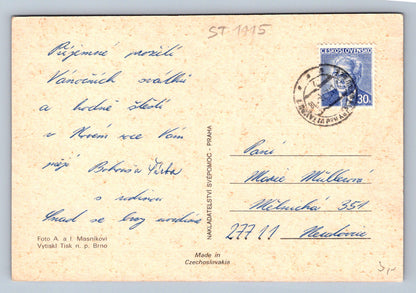 ST 1115
Příjemné prožití
Vánočních svátků
a hodně štěstí
v Novém roce Vám
přejí Bohouš
s rodinou
Snad se brzy uvidíme
Foto A. a I. Masníkovi
Vytiskl Tisk n. p. Brno
NAKLADATELSTVÍ SVÉPOMOC - PRAHA
Made in
Czechoslovakia
ČESKOSLOVENSKO
30
Paní
Marie Müllerová
Mělnická 351
277 11 Neratovice
3,-